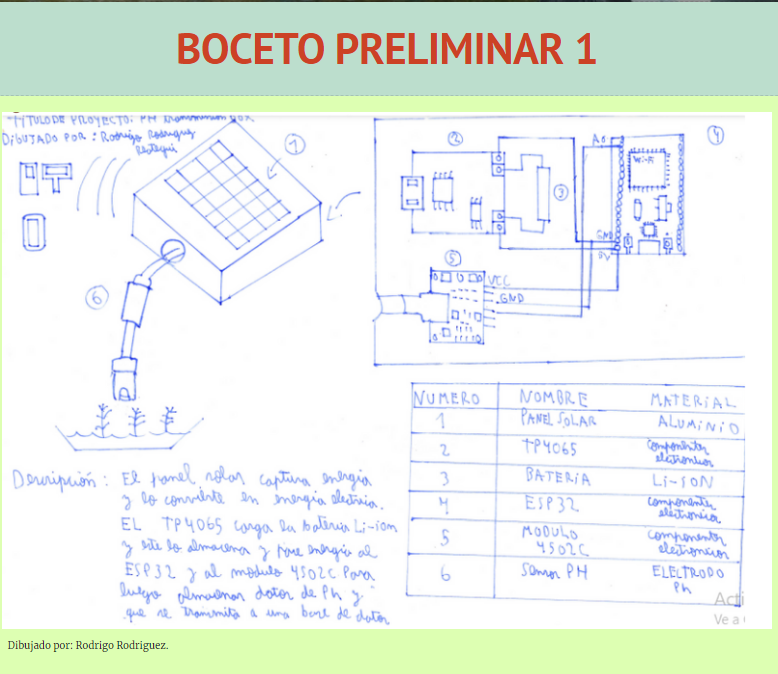 BOCETO PRELIMINAR 1
-TITULO DE PROYECTO: PH transmission BOX
DIBUJADO POR: Rodrigo Rodriguez
1
2
3
4
5
6
A0
Wi-Fi
GND
5V
VCC
GND
NUMERO NOMBRE MATERIAL
1 PANEL SOLAR ALUMINIO
2 TP4065 componentes eletronicos
3 BATERIA Li-ION
4 ESP32 componentes eletronicos
5 MODULO 4502C componentes eletronicos
6 Sensor PH ELELTRODO Ph
Descripción: El panel solar captura energia
y lo convierte en energia electrica.
EL TP4065 carga la bateria Li-ion
y este lo almacena y pone energia al
ESP32 y al modulo 4502C Para
luego almacenar datos de Ph y
que se transmita a una base de datos
Acti
Ve a
Dibujado por: Rodrigo Rodriguez.